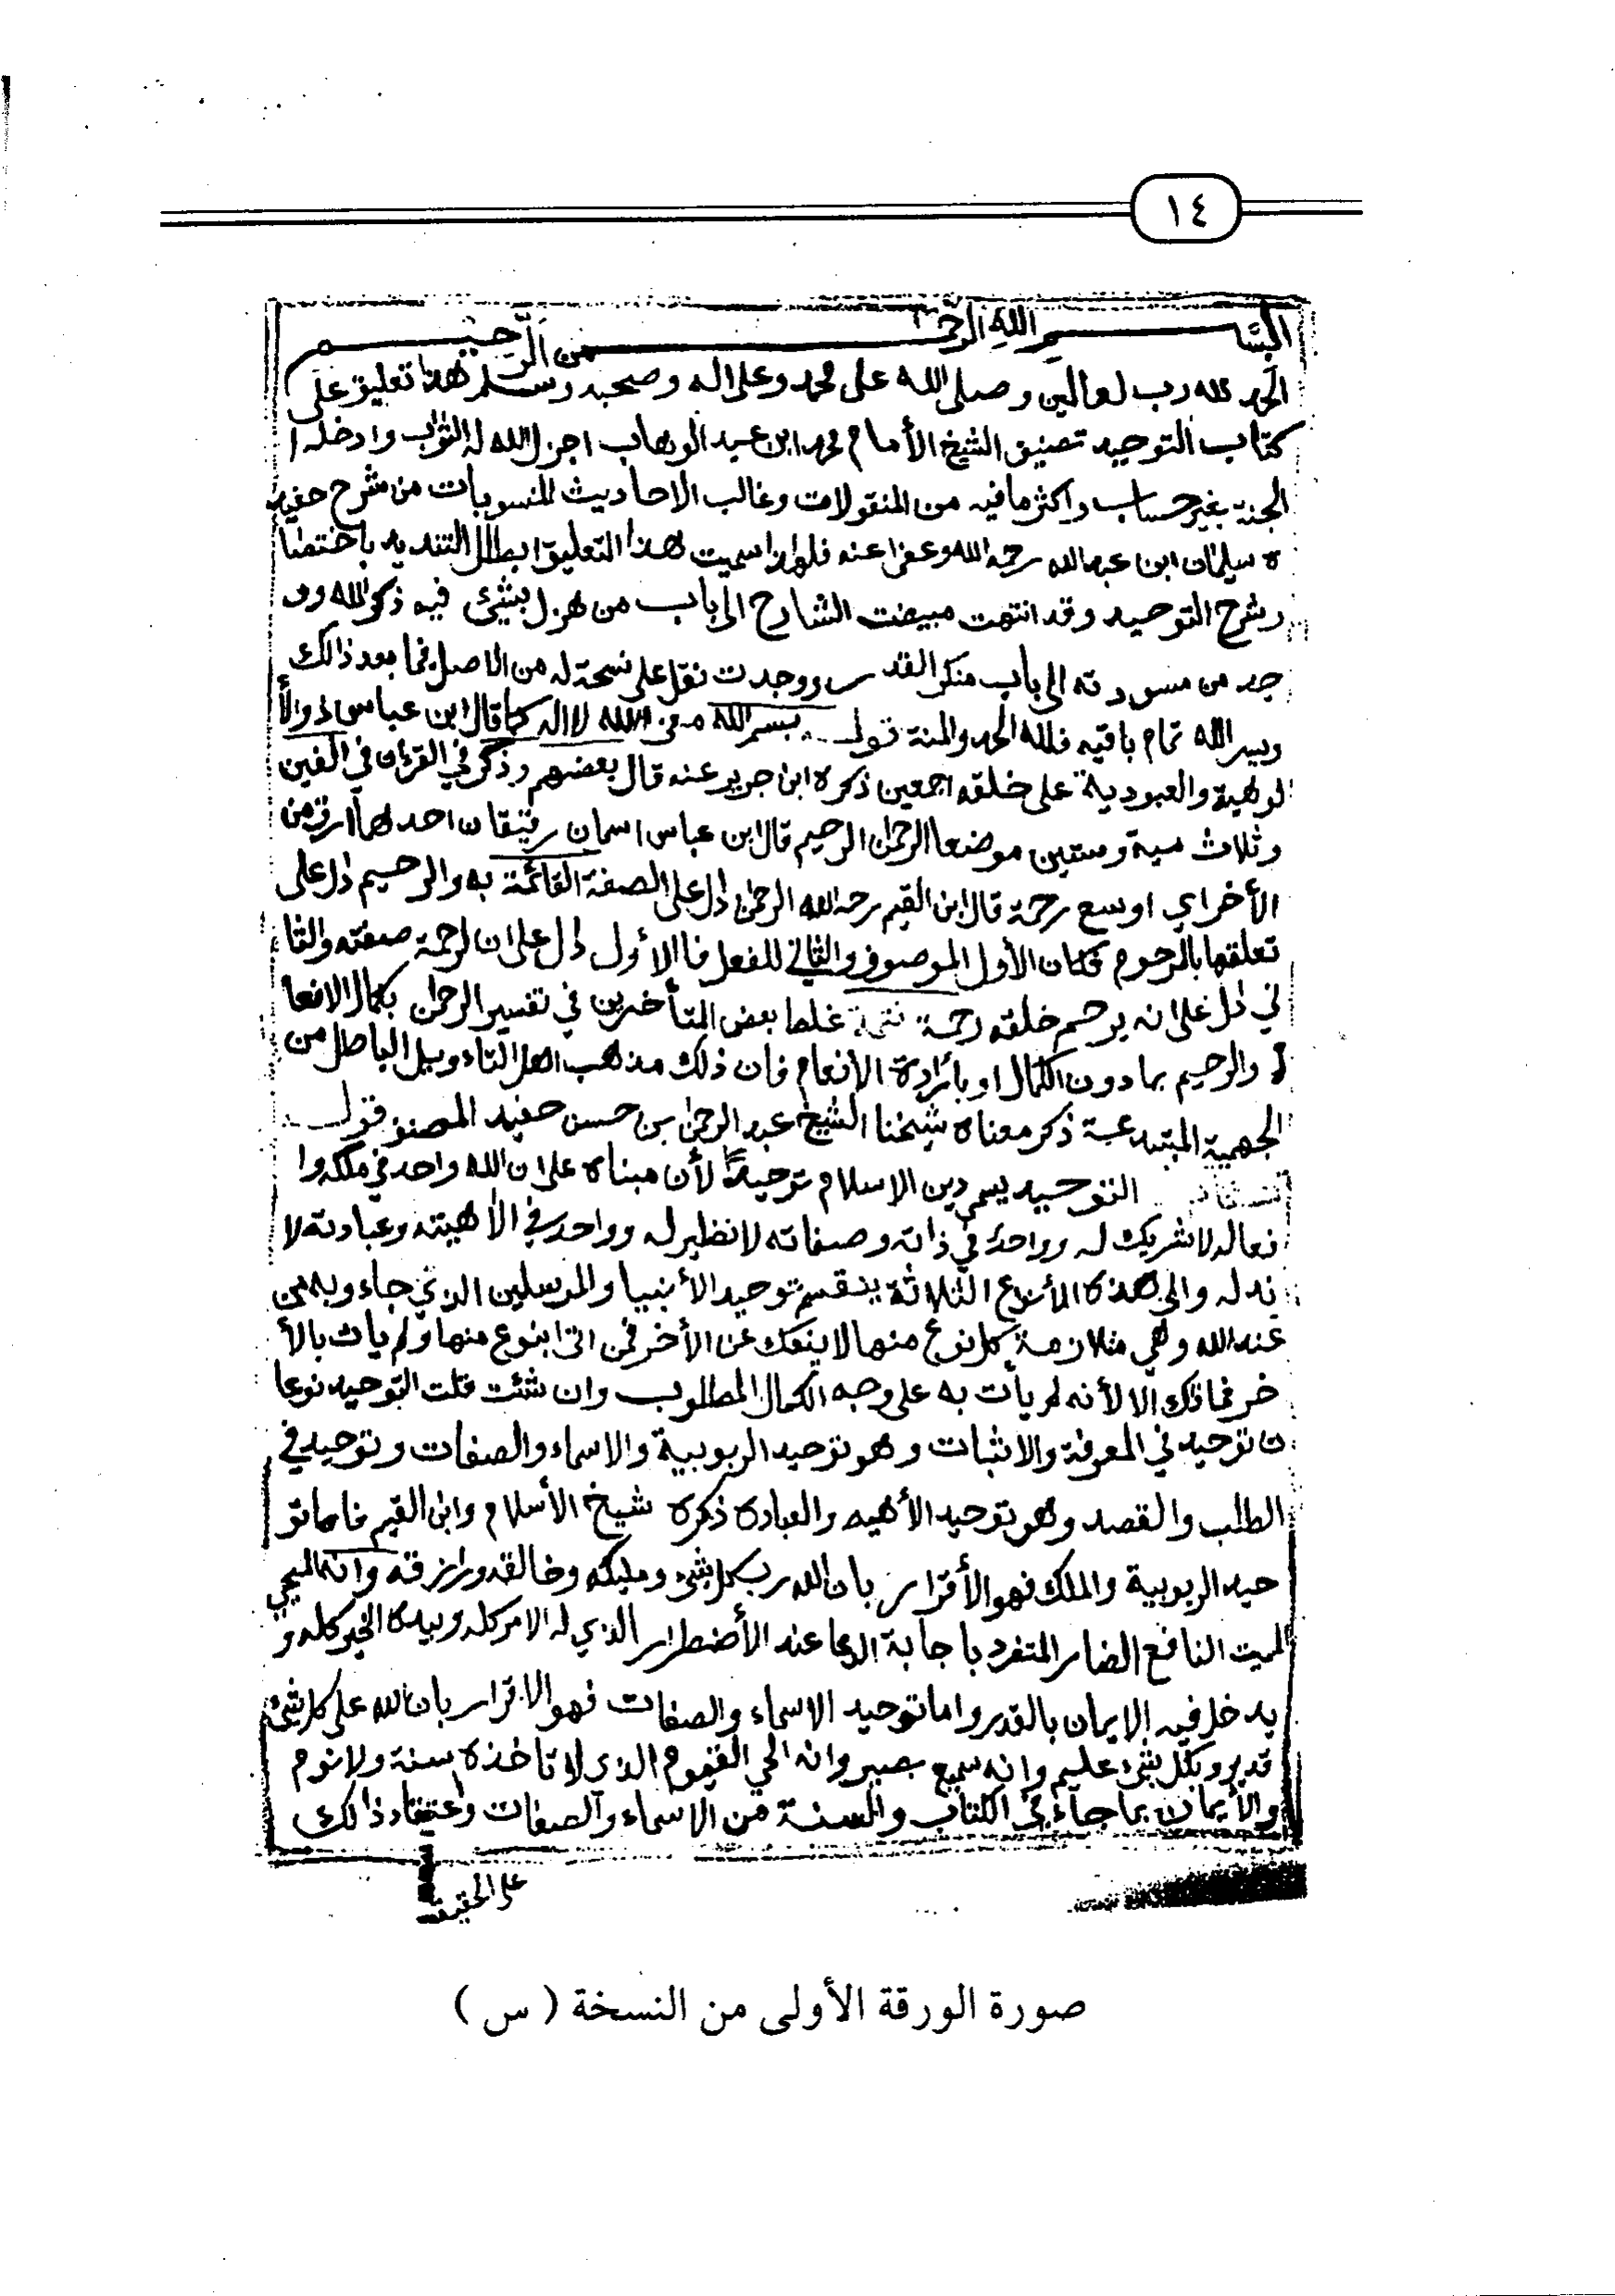 ١٤
بسم الله الرحمن الرحيم
الحمد لله رب لعالمين وصلى الله على محمد وعلى اله وصحبه وسلم هذا تعليق على
كتاب التوحيد تصنيف الشيخ الأمام محمد ابن عبد الوهاب اجزل الله له الثواب وادخله ا
لجنة بغير حساب واكثر ما فيه من المنقولات وغالب الاحاديث المنسوبات من شرح حفيد
ه سليمان ابن عبد الله رحمه الله وعفى عنه فلهذا سميت هذا التعليق ابطال التنديد باختصا
ر شرح التوحيد وقد انتهت مبيضت الشارح الى باب من هزل بشئ فيه ذكر الله وو
جد من مسودته الى باب منكر القدر ووجدت نقل على نسخة له من الاصل فما بعد ذالك
ويسر الله تمام باقيه فلله الحمد والمنة قوله بسم الله معنى الله لا اله كما قال ابن عباس ذو الأ
لوهية والعبودية على خلقه اجمعين ذكره ابن جرير عنه قال بعضهم وذكر في القرءان في الفين
وثلاث مية وستين موضعا الرحمن الرحيم قال ابن عباس اسمان رقيقان احدهما أرق من
الأخر اي اوسع رحمة قال ابن القيم رحمه الله الرحمن دل على الصفة القائمة به والرحيم دل على
تعلقها بالرحوم فكان الأول الموصوف والثاني للفعل فا الأول دل على ان لرحمة صفته والثا
ني دل على انه يرحم خلقه رحمة غلط بعض المتأخرين في تفسير الرحمن بكمال الانعا
م والرحيم بما دون الكمال او بارادة الانعام فان ذلك مذهب اهل التاءويل الباطل من
الجهمية المبتدعة ذكر معناه شيخنا الشيخ عبد الرحمن بن حسن حفيد المصنف قوله
التوحيد يسمى دين الاسلام توحيدًا لأن مبناه على ان الله واحد في ملكه وا
فعاله لا شريك له وواحد في ذاته وصفاته لا نظير له وواحد في الأهيته وعبادته لا
ند له والى هذه الأنوع الثلاثة ينقسم توحيد الأنبيا والمرسلين الذي جاء وبه من
عند الله وهي متلازمة كل نوع منها لا ينفك عن الأخر فمن اتى بنوع منها ولم يات بالأ
خر فماذك الا لأنه لم يأت به على وجه الكمال المطلوب وان شئت قلت التوحيد نوعا
ن توحيد في المعرفة والاثبات وهو توحيد الربوبية والاسماء والصفات وتوحيد في
الطلب والقصد وهو توحيد الألهيه والعباده ذكره شيخ الأسلام وابن القيم فاما تو
حيد الربوبية والملك فهو الأقرار بان الله رب كل شئ ومليكه وخالقه ورازقه وانه المحيي
المميت النافع الضار المتفرد باجابة الدعا عند الأضطرار الذي له الامر كله وبيده الخير كله و
يدخل فيه الإيمان بالقدر واما توحيد الاسماء والصفات فهو الاقرار بان الله على كل شئ
قدير وبكل شئ عليم وانه سميع بصير وانه الحي القيوم الذي لا تاخذه سنة ولا نوم
والأيمان بما جاء في الكتاب والسنة من الاسماء والصفات واعتقاد ذالك
على الحقيقة
صورة الورقة الأولى من النسخة ( س )